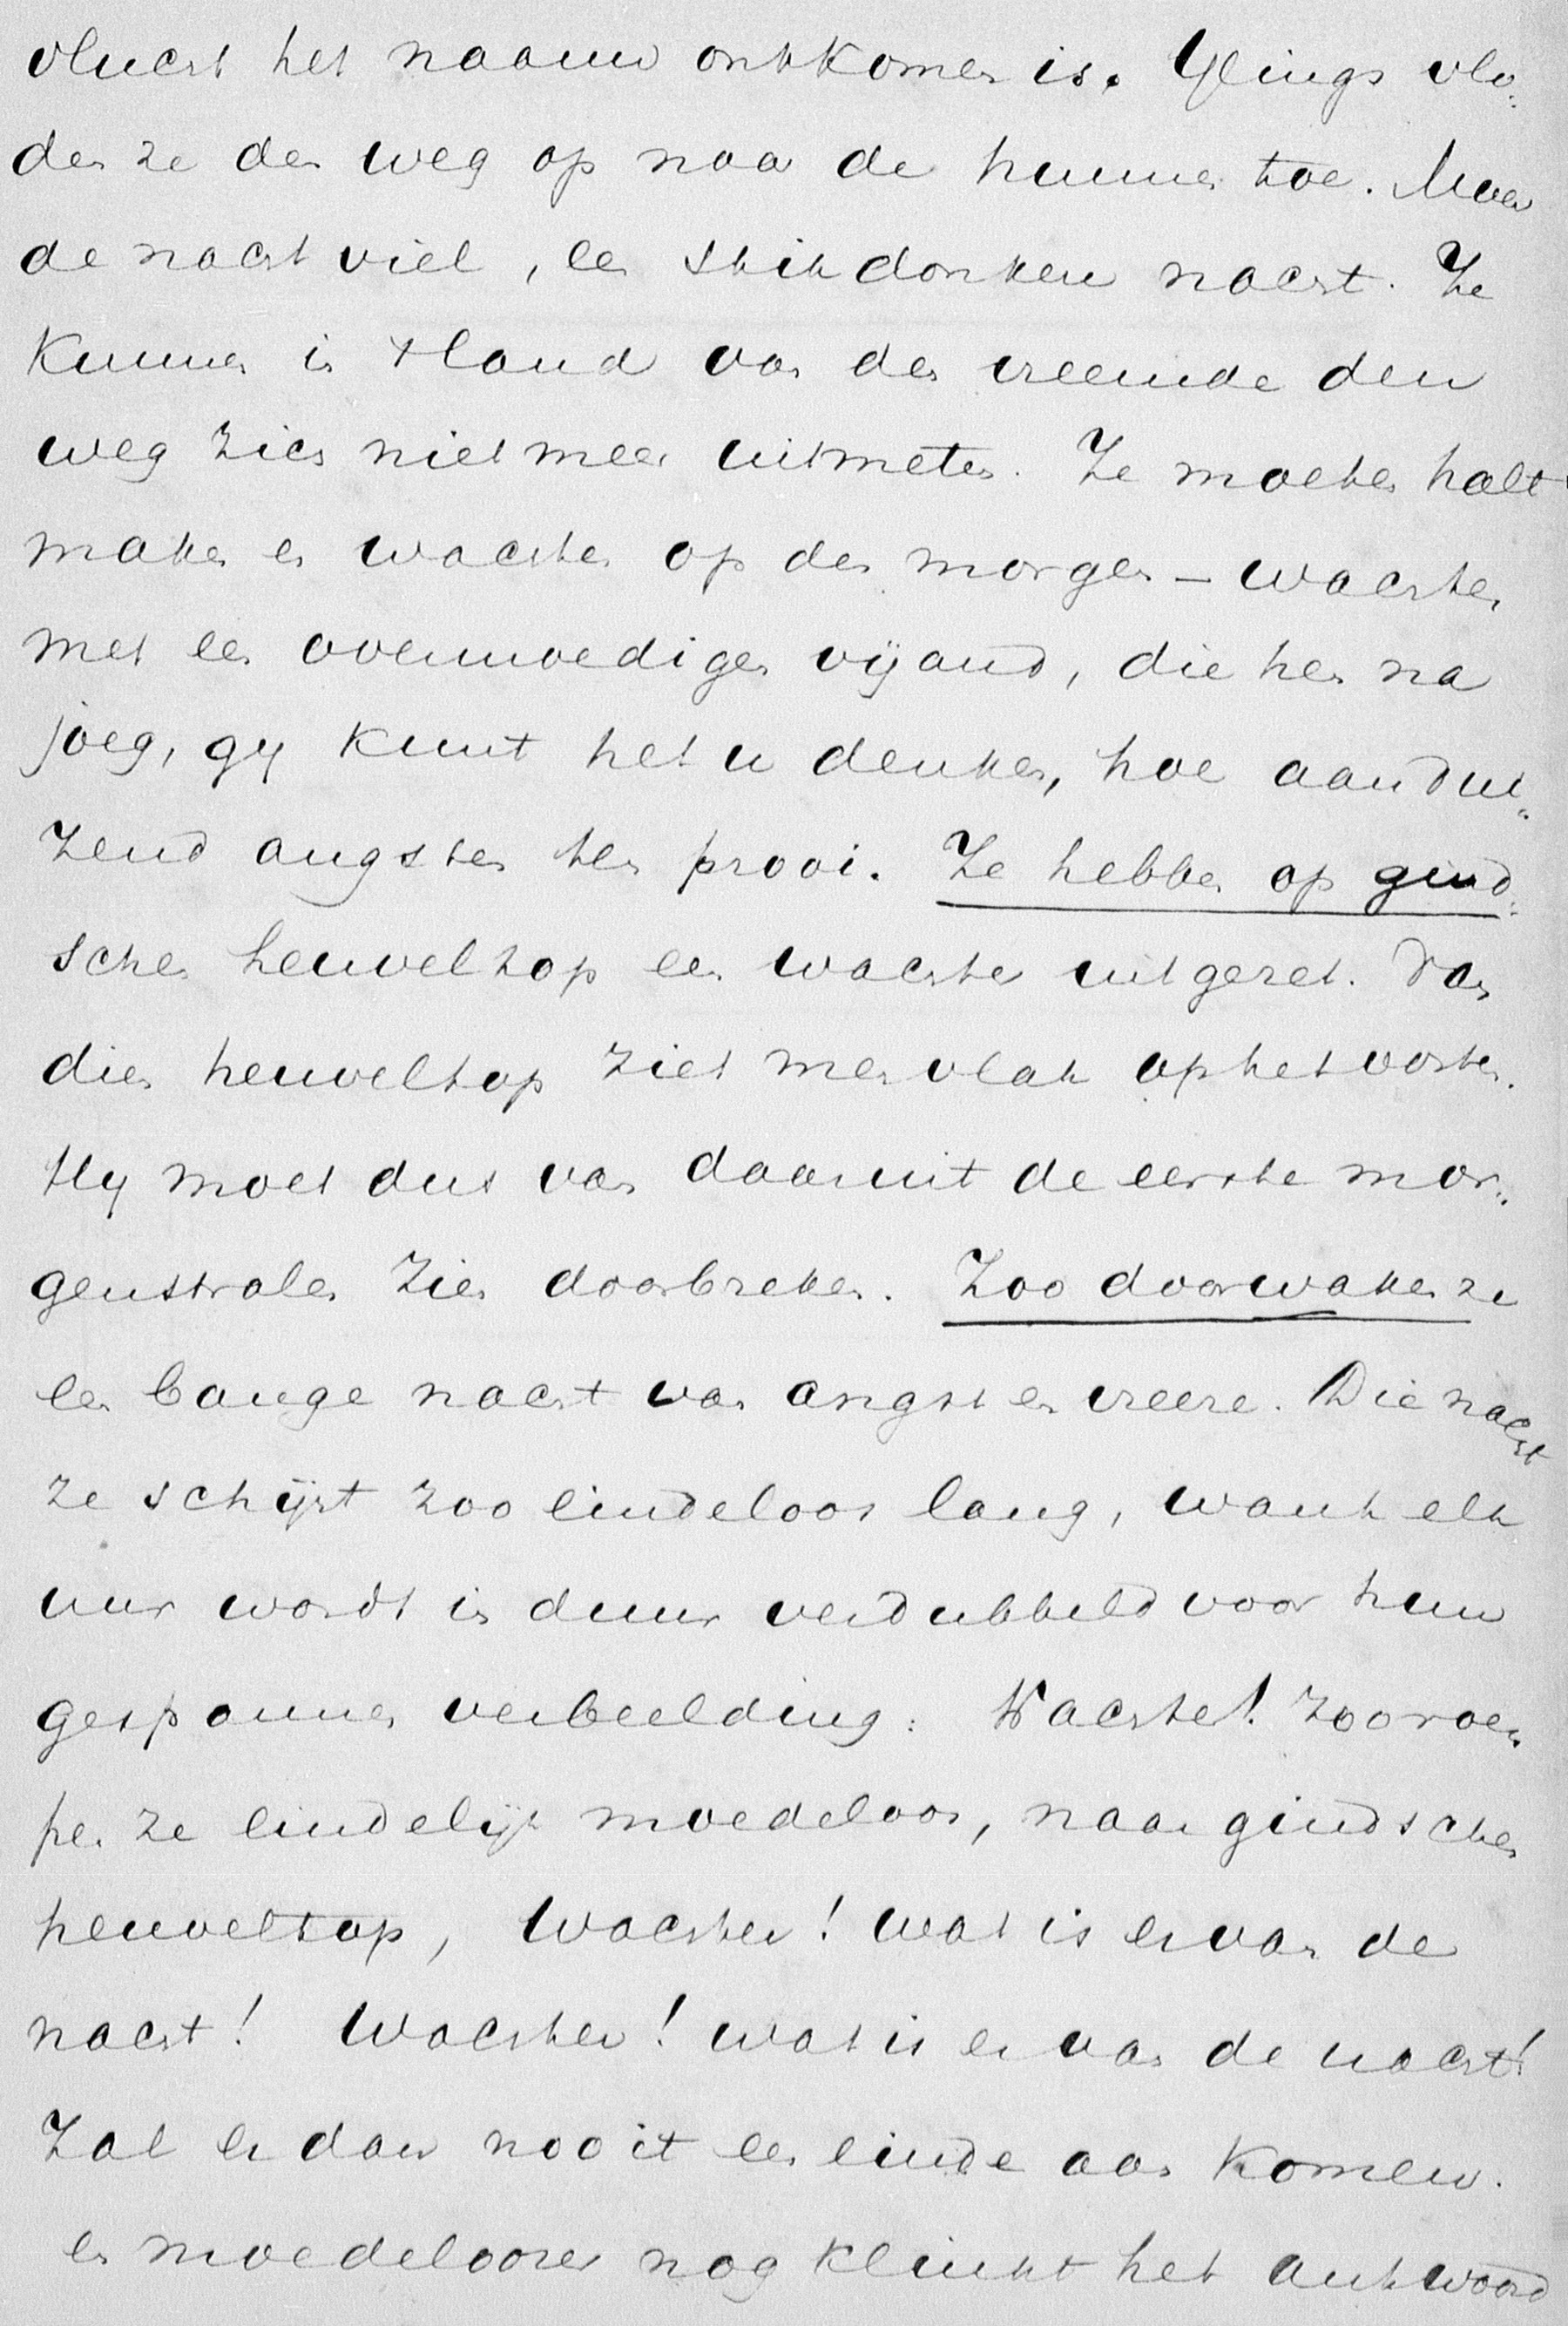 vlucht het naauw ontkomen is. Ylings vlo:
den ze den weg op naar de hunnen toe. Maar
de nacht viel, een stikdonkere nacht. Ze
kunnen in 't land van den vreemde den
weg zich niet meer uitmeten. Ze moeten halt
maken en wachten op den morgen – wachten
met een overmoedigen vijand, die hen na
joeg, gy kunt het u denken, hoe aan dui:
zend angsten ten prooi. Ze hebben op gind:
schen heuveltop een wachter uitgezet. Van
dien heuveltop ziet men vlak op het oosten.
Hy moet dus van daaruit de eerste mor:
genstralen zien doorbreken. Zoo doorwaken ze
een bange nacht van angst en vreeze. Die nacht
ze schijnt zoo eindeloos lang, want elk
uur wordt in duur verdubbeld voor hun
gespannen verbeelding: Wachter! zoo roe:
pen ze eindelijk moedeloos, naar gindschen
heuveltop, Wachter! wat is er van de
nacht! Wachter! wat is er van de nacht!
Zal er dan nooit een einde aan komen.
en moedeloozer nog klinkt het antwoord